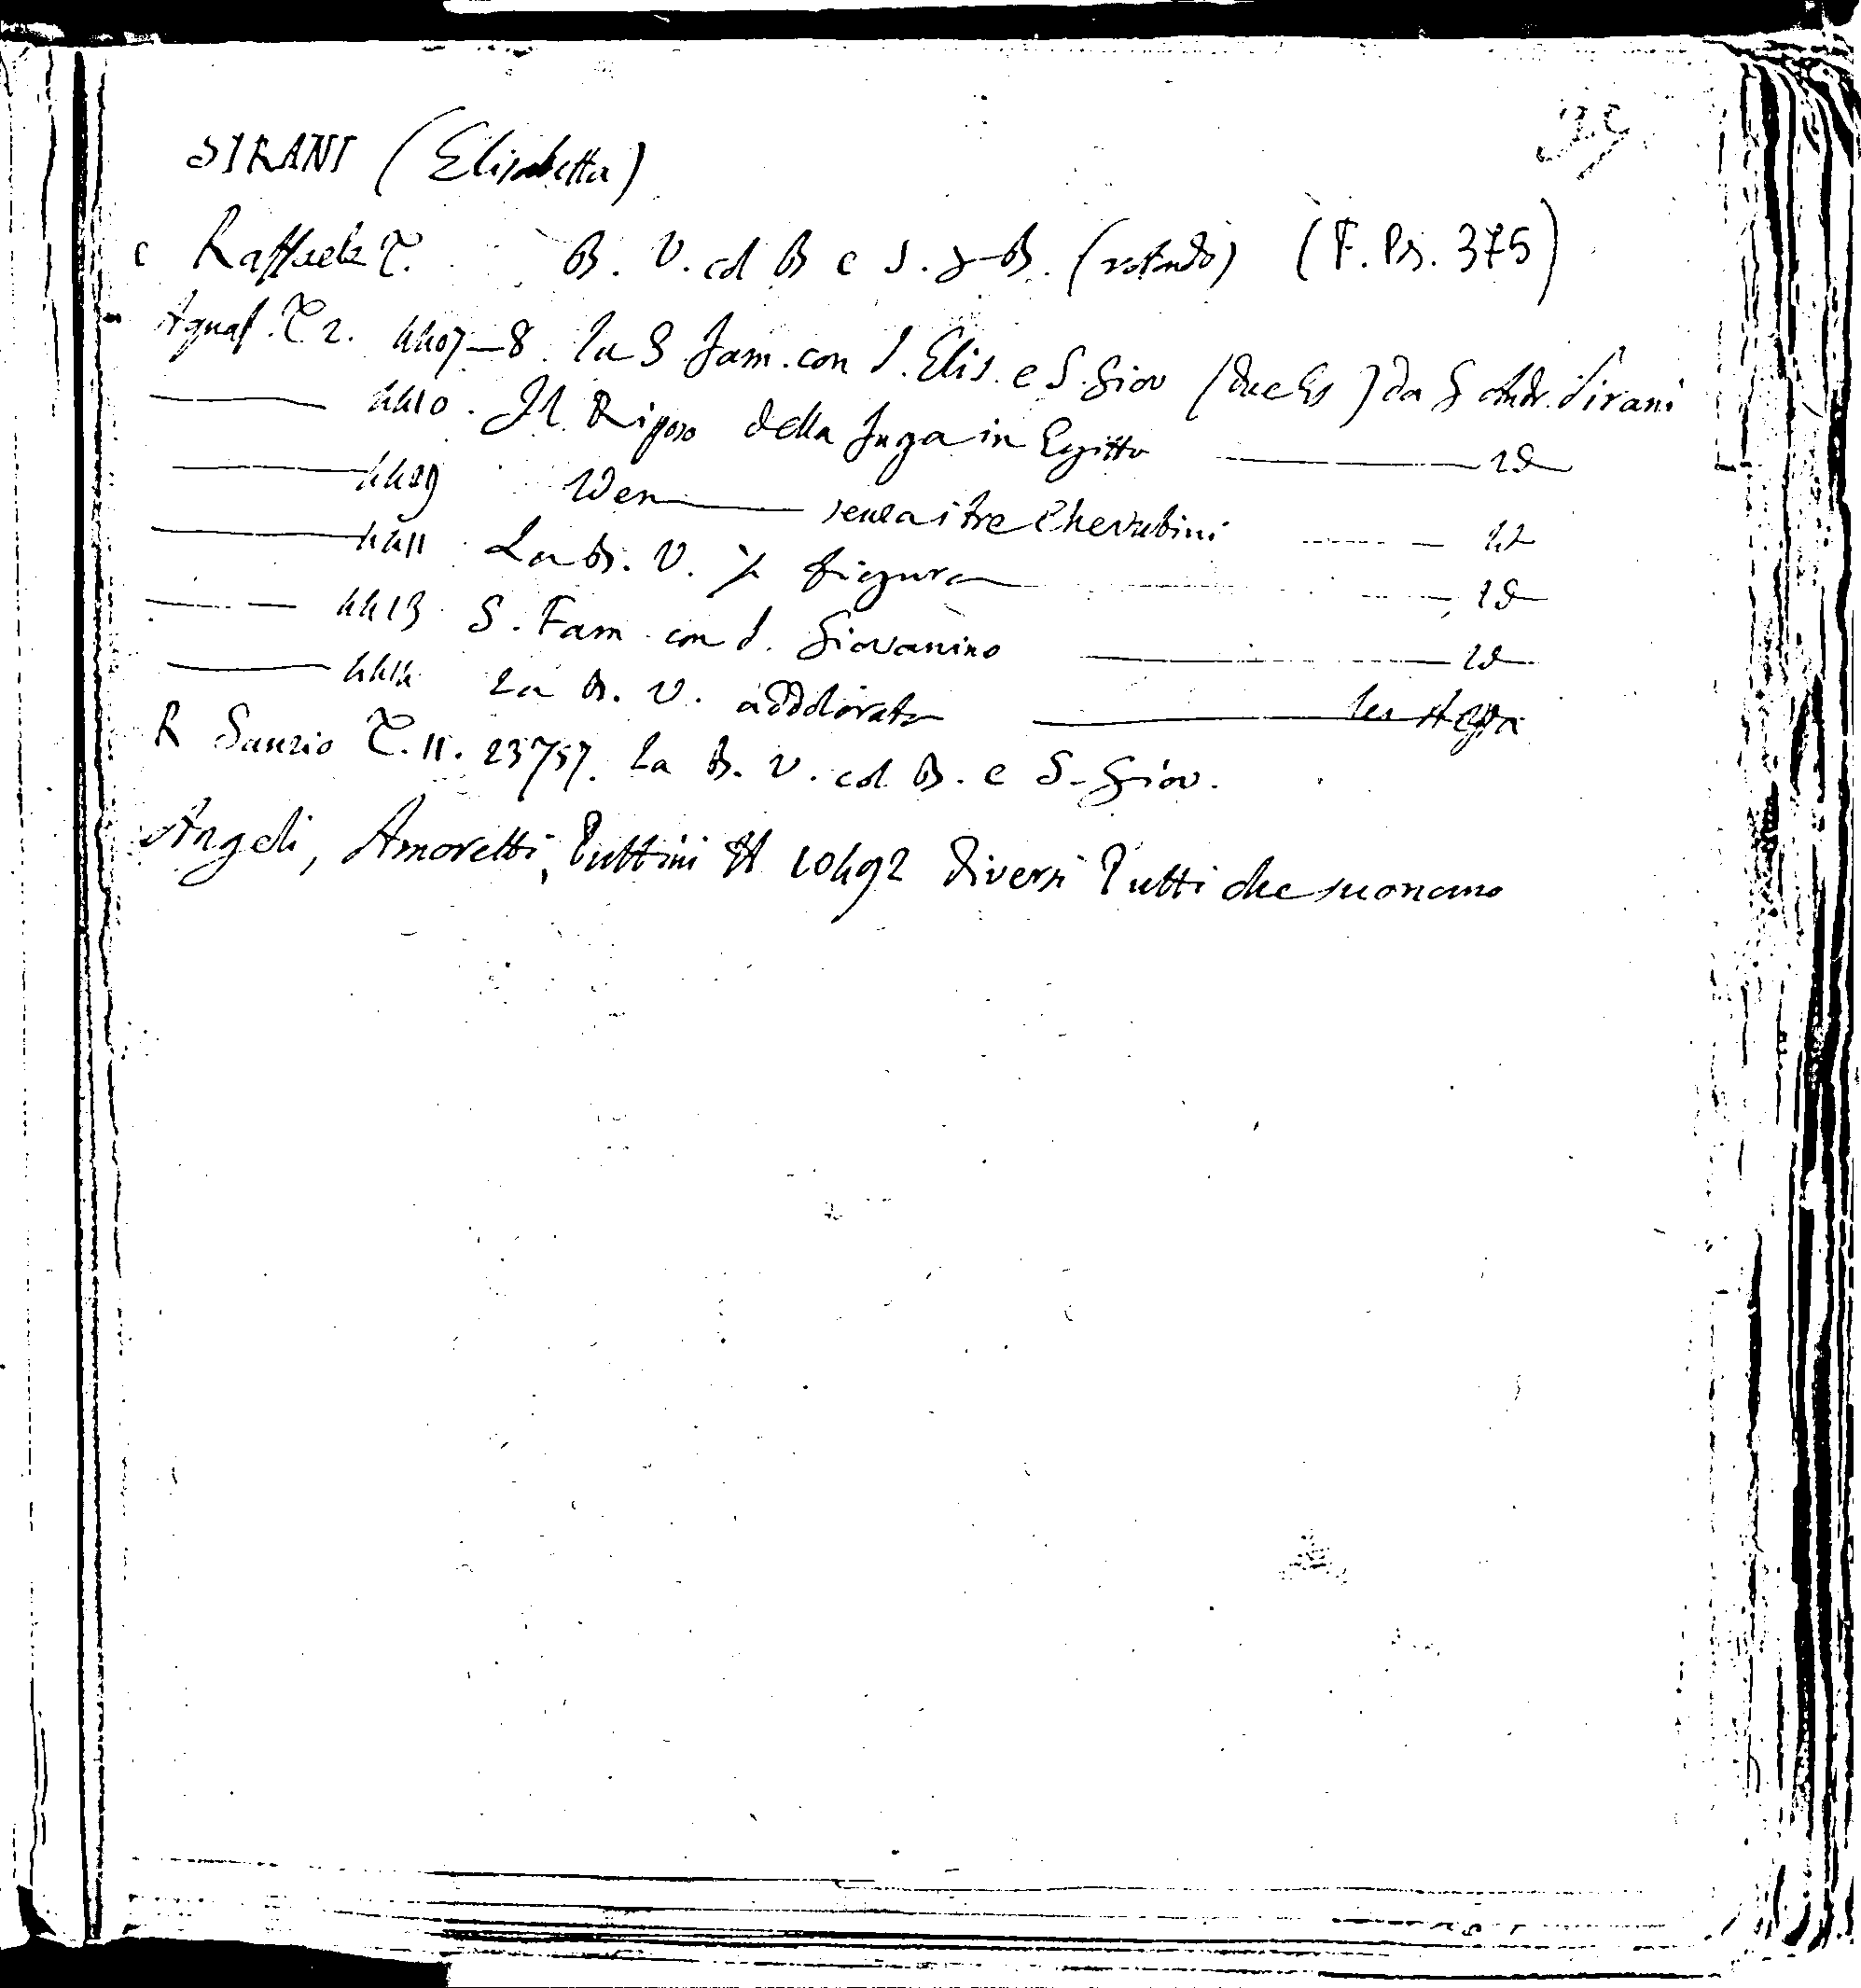 39
SIRANI (Elisabetta)
c Raffaele T. B. V. col B e S. G B. (rotondo) (F. Ps. 375)
Aquaf. T 2. 4407–8. La S. Fam. con S. Elis. e S. Giov (due Es) da G Andr. Sirani
——— 4410. Il Riposo della Fuga in Egitto ——— id
——— 4429 Idem ——— senza i tre Cherubini
——— 4411 La B. V. ½ figura ——— id
——— 4413 S. Fam. con S. Giovanino ——— id
——— 4414 La B. V. addolorata ——— Les stessa
R Sanzio T. 11. 23757. La B. V. col B. e S. Giov.
Angeli, Amoretti, Puttini H 10492 Diversi Putti che suonano